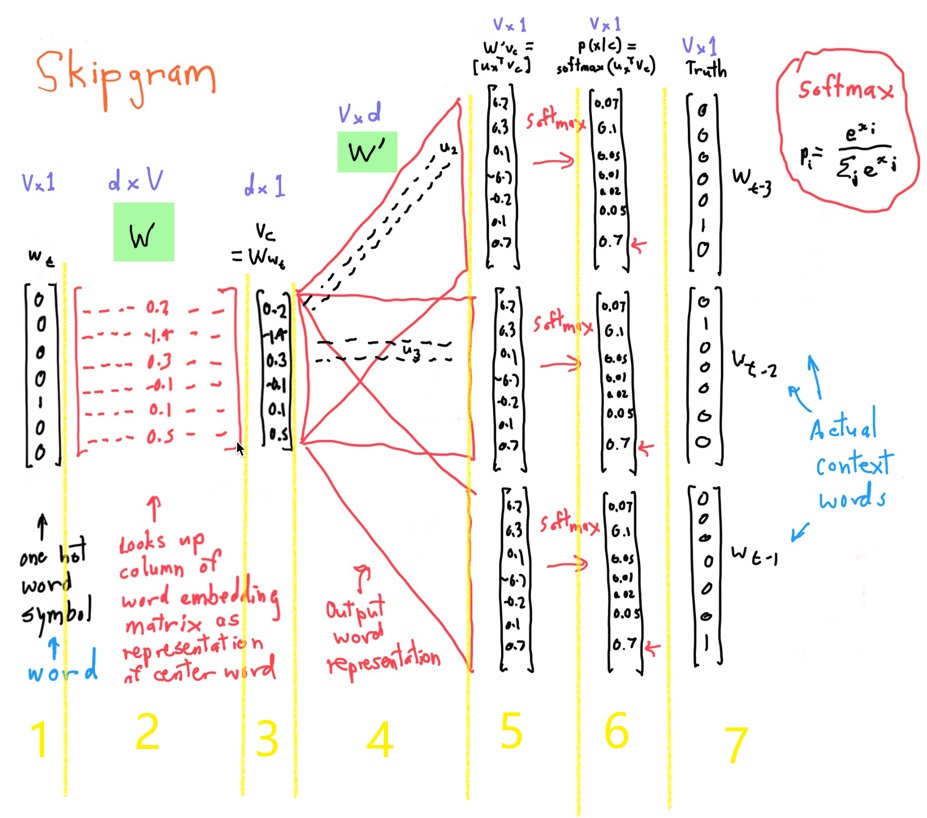 Skipgram
V x 1
w_t
0
0
0
0
1
0
0
one hot
word
symbol
word
1
d x V
W
---- 0.2 - -
---- -1.4 - -
---- 0.3 - -
---- -0.1 - -
---- 0.1 - -
---- 0.5 - -
Looks up
column of
word embedding
matrix as
representation
of center word
2
d x 1
V_c
= W w_t
0.2
-1.4
0.3
-0.1
0.1
0.5
3
V x d
W'
u_2
u_3
Output
word
representation
4
V x 1
W'v_c =
[u_x^T v_c]
0.3
0.1
-0.2
0.1
0.7
0.3
0.1
-0.2
0.1
0.7
0.3
0.1
-0.2
0.1
0.7
5
softmax
softmax
softmax
V x 1
p(x|c) =
softmax(u_x^T v_c)
0.07
0.1
0.05
0.01
0.02
0.05
0.7
0.07
0.1
0.05
0.01
0.02
0.05
0.7
0.07
0.1
0.05
0.01
0.02
0.05
0.7
6
V x 1
Truth
0
0
0
0
0
1
0
w_t-3
0
1
0
0
0
0
0
w_t-2
0
0
0
0
0
0
1
w_t-1
Actual
context
words
7
softmax
p_i = e^x_i / Σ_j e^x_j